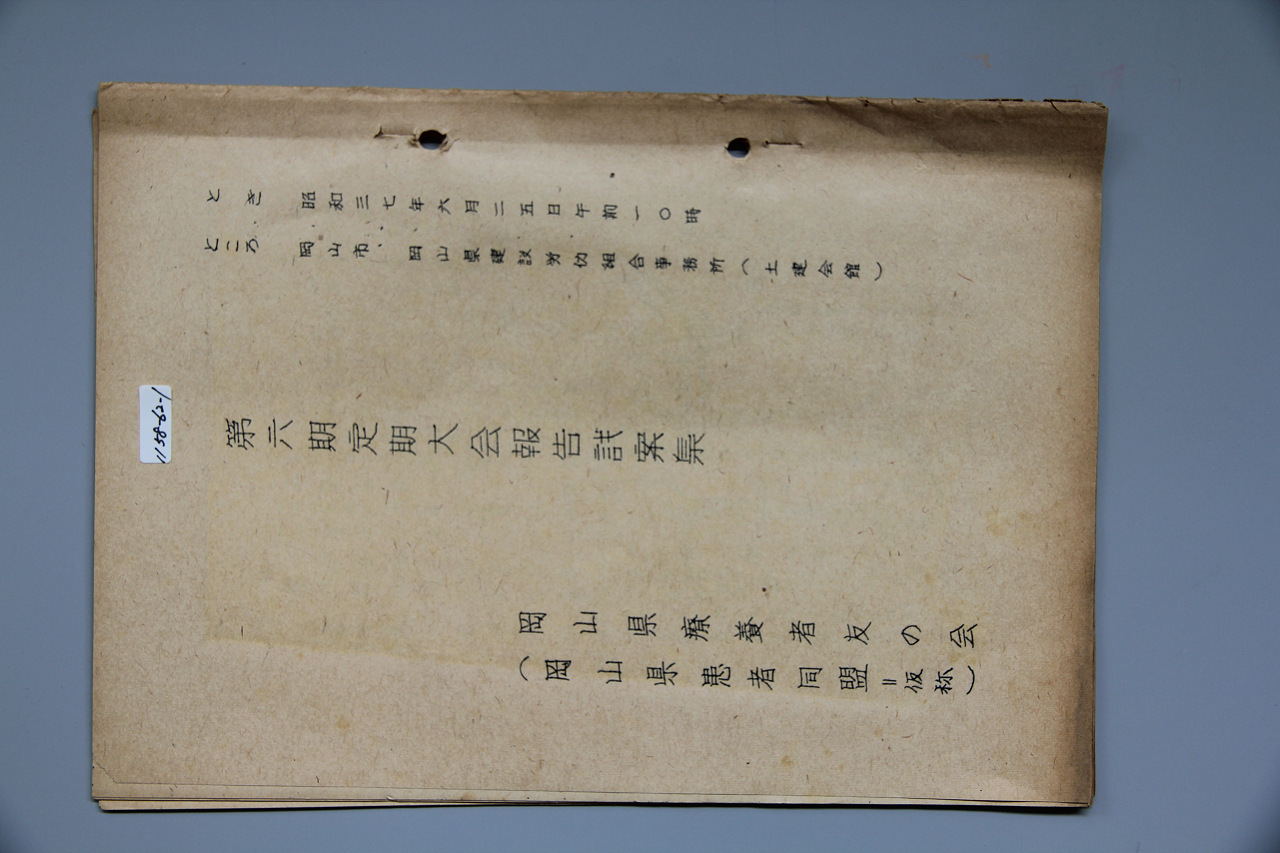 とき 昭和三七年六月二五日午前一〇時
ところ 岡山市、岡山県建設労仂組合事務所(土建会館)
第六期定期大会報告試案集
岡山県療養者友の会
(岡山県患者同盟=仮称)
1158-62-1